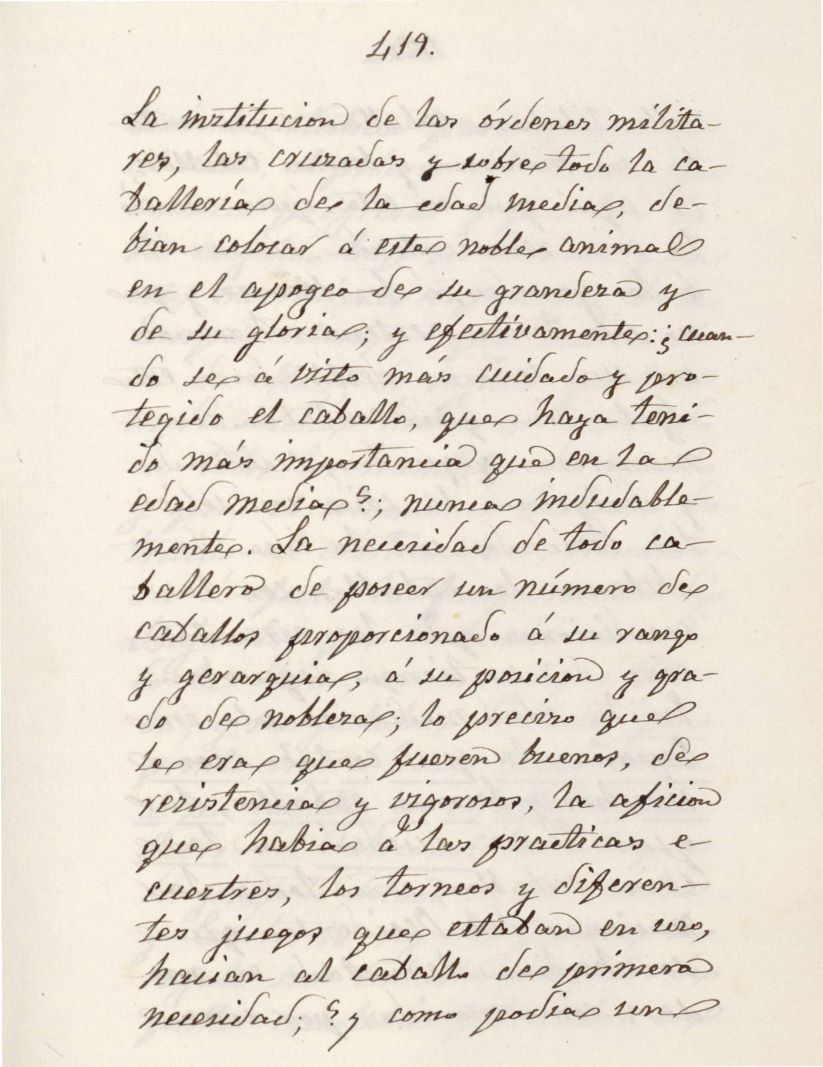 419.
La institucion de las órdenes milita-
res, las cruzadas y sobre todo la ca-
ballería de la edad media, de-
bian colocar á este noble animal
en el apogeo de su grandeza y
de su gloria; y efectivamente: ¿cuan-
do se á visto más cuidado y pro-
tegido el caballo, que haya teni-
do más importancia que en la
edad media?; nunca indudable-
mente. La necesidad de todo ca-
ballero de poseer un número de
caballos proporcionado á su rango
y gerarquia, á su posicion y gra-
do de nobleza; lo preciso que
le era que fuesen buenos, de
resistencia y vigorosos, la aficion
que habia á las practicas e-
cuestres, los torneos y diferen-
tes juegos que estaban en uso,
hacian al caballo de primera
necesidad; ? y como podia un